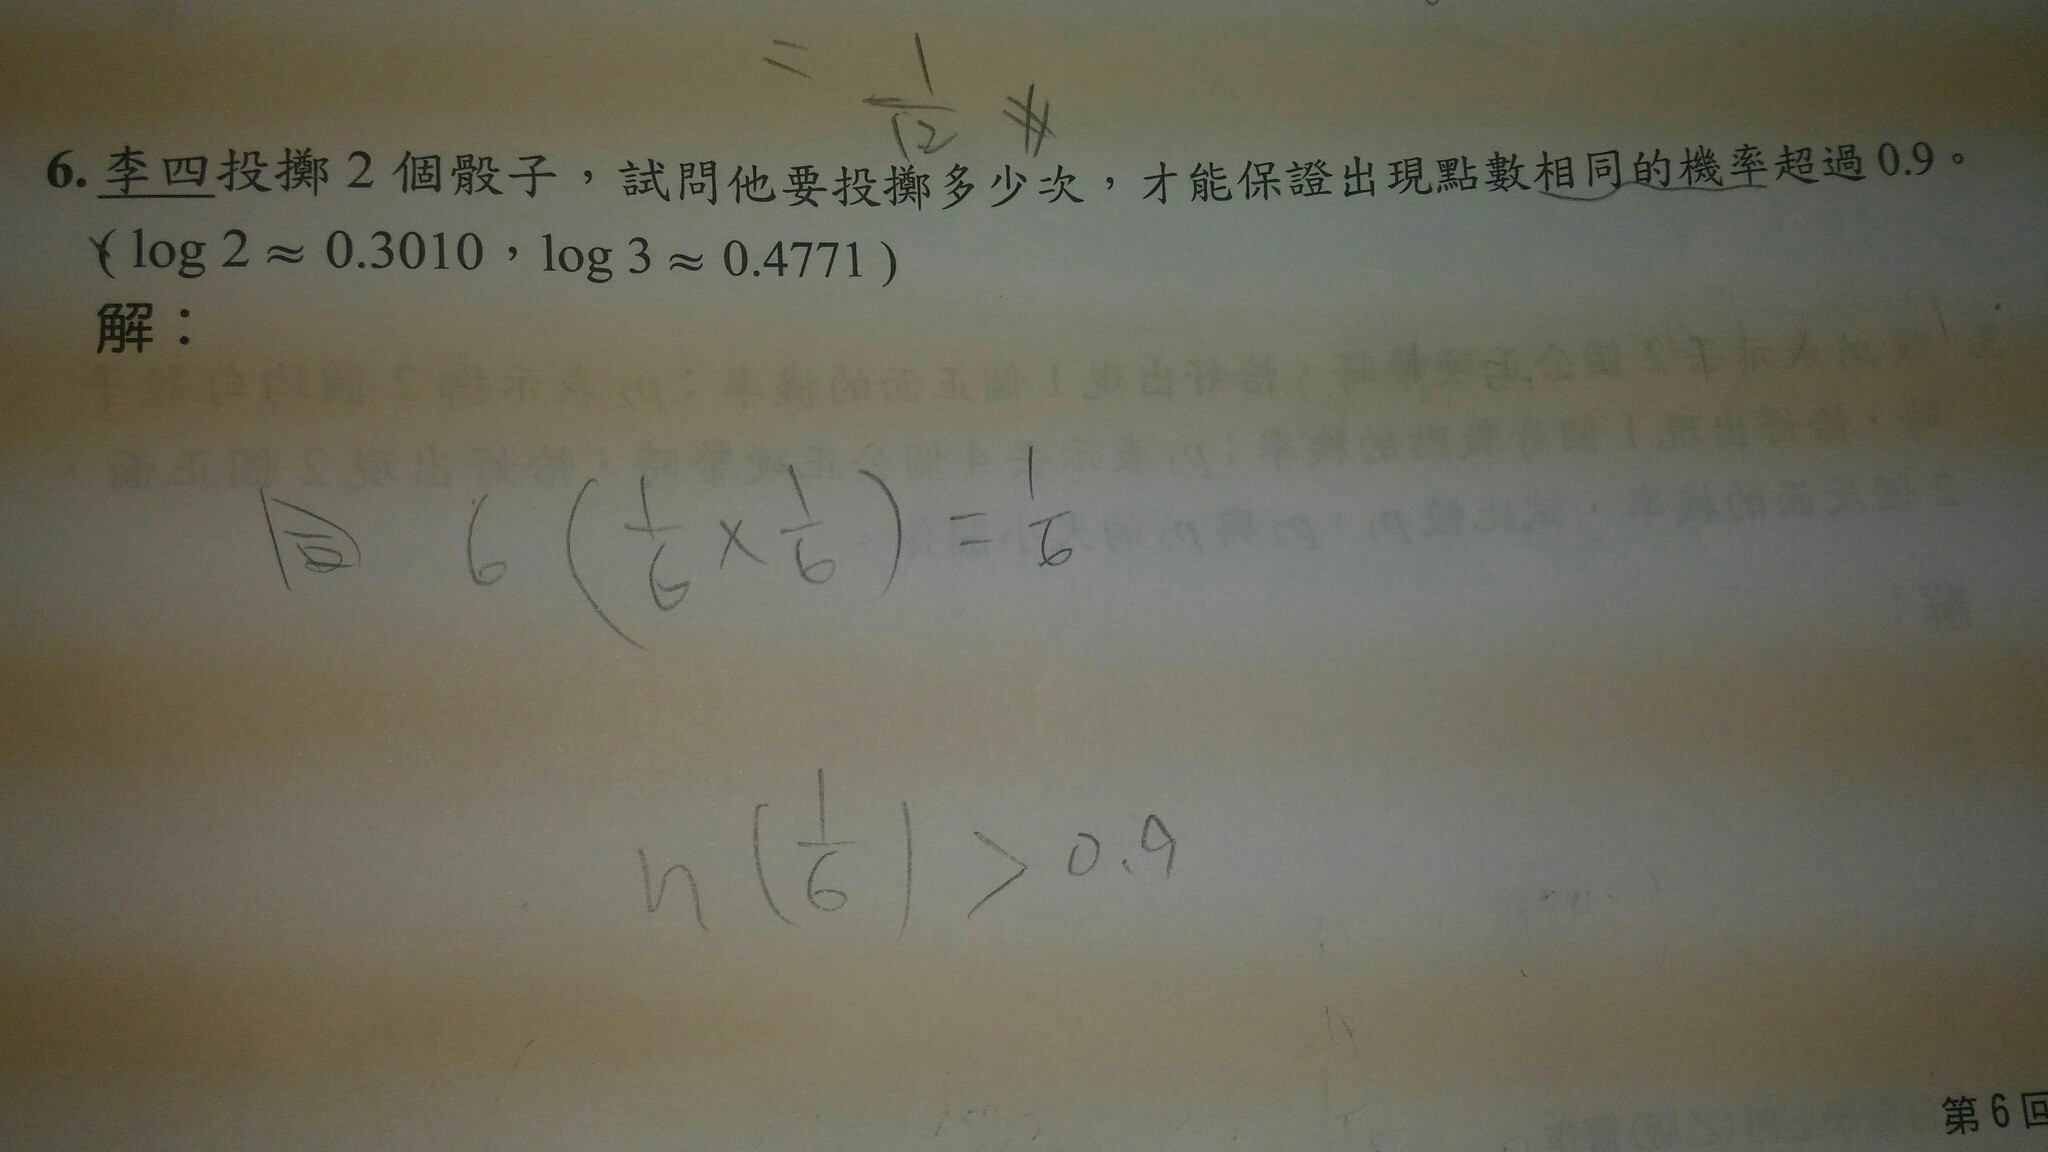 = 1/12
6. 李四投擲 2 個骰子，試問他要投擲多少次，才能保證出現點數相同的機率超過 0.9。
( log 2 ≈ 0.3010，log 3 ≈ 0.4771 )
解：
同 6 ( 1/6 × 1/6 ) = 1/6
n ( 1/6 ) > 0.9
第 6 回